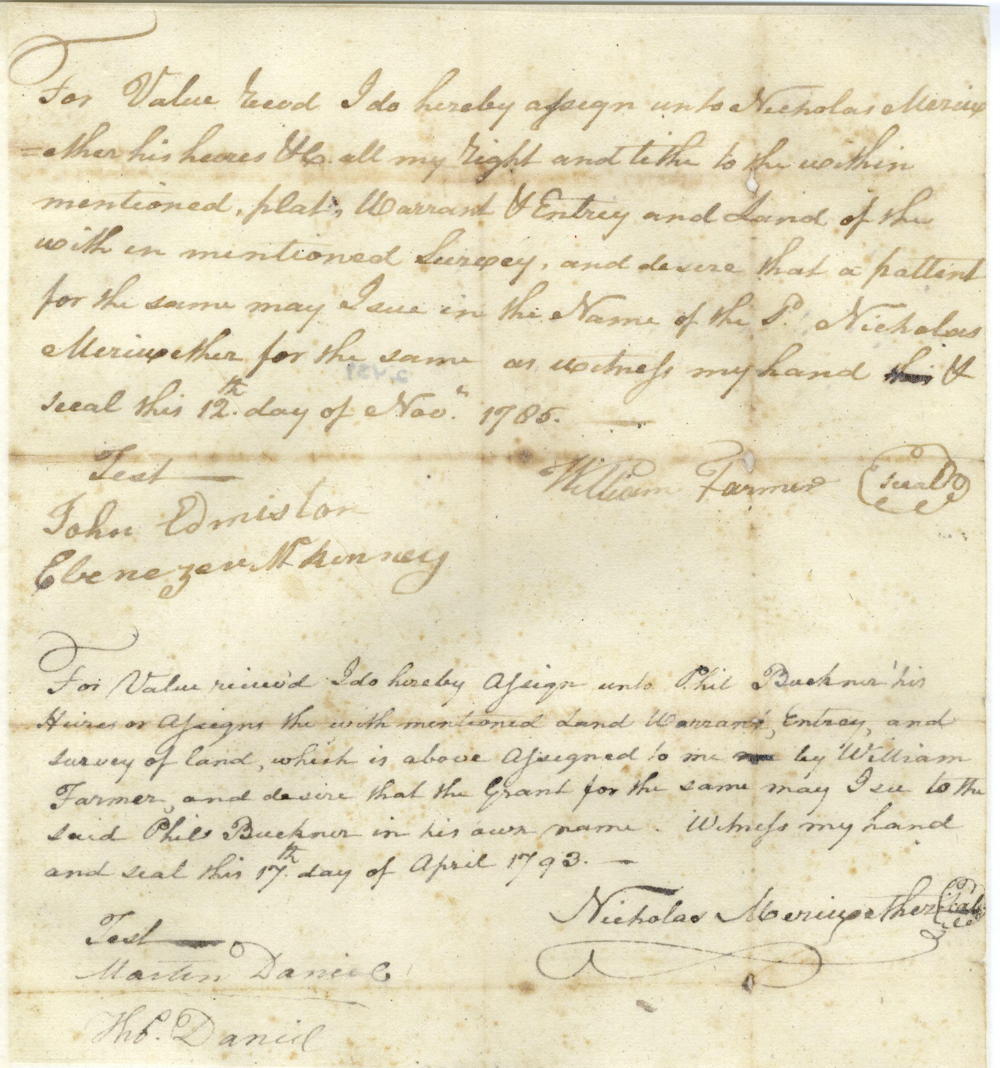 For Value Recvd I do hereby assign unto Nicholas Meriw
=ether his heires &c. all my Right and tithe to the within
mentioned, plat, Warrant & Entrey and Land of the
with in mentioned Survey, and desire that a pattent
for the same may Isue in the Name of the Sd. Nicholas
Meriwether for the same as witness my hand &
seal this 12th. day of Novr. 1785.
Test
William Farmer (seal)
John Edmiston
Ebenezer McKinney
For Value reciev'd I do hereby Assign unto Phil Buckner his
Heires or Assigns the with mentioned Land Warrant, Entrey, and
survey of land, which is above Assigned to me by William
Farmer, and desire that the Grant for the same may Isue to the
said Phil Buckner in his own name. Witness my hand
and seal this 17th. day of April 1793.
Nicholas Meriwether (seal)
Test
Martin Daniel
Thos. Daniel